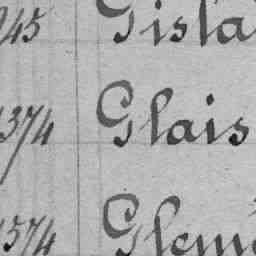 245 Gisla
1374 Glais
1374 Glem